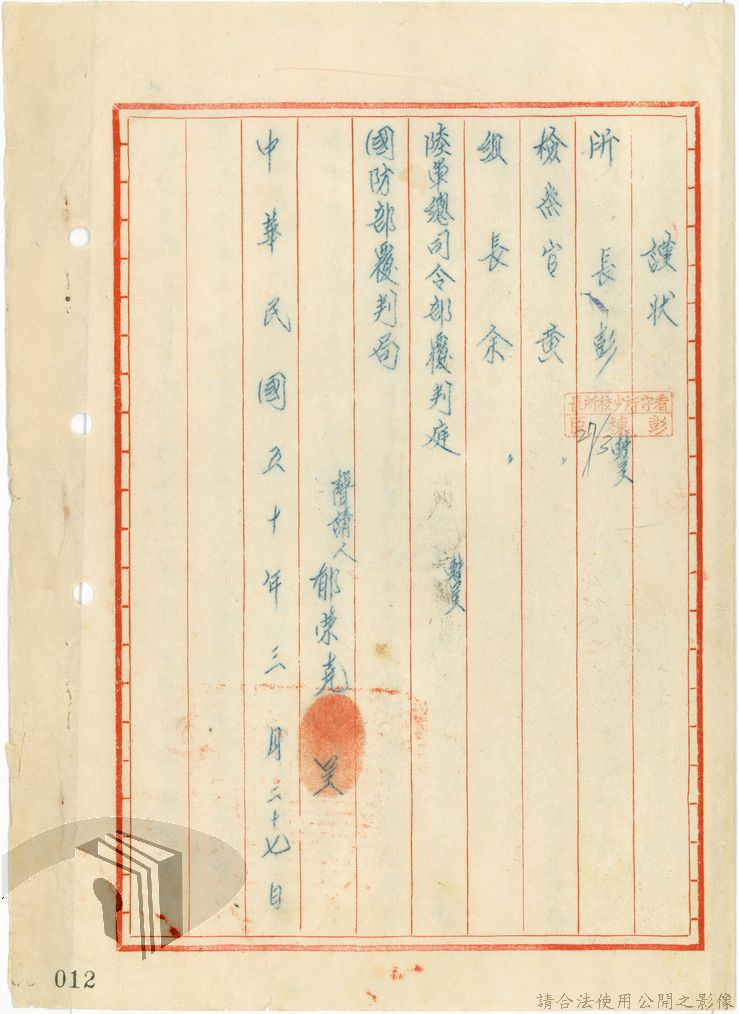 謹狀
所長彭
看守所少校所長
彭棟
27/3
轉呈
檢察官黃
組長余
陸軍總司令部覆判庭
轉呈
國防部覆判局
聲請人
郁榮堯
呈
中華民國五十年三月二十七日
012
請合法使用公開之影像